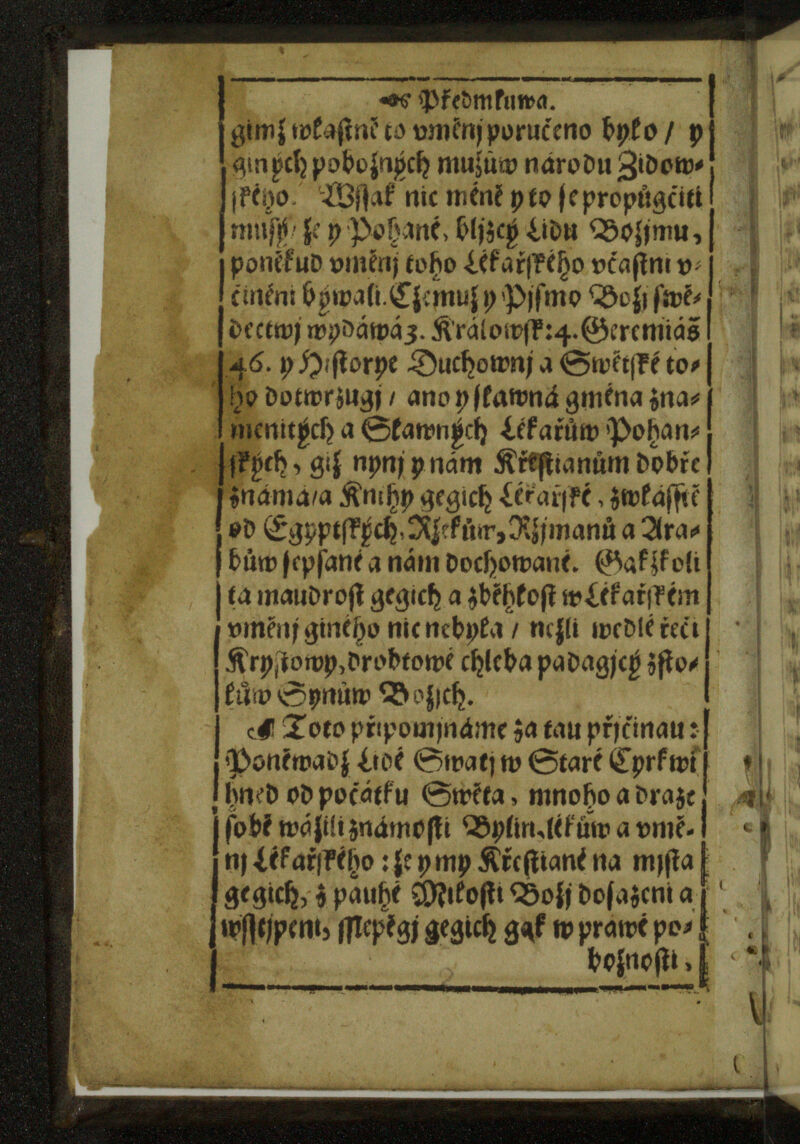 Předmłuwa.
gimž własſtně to vměnj poručeno było / y
giných pobožných mužůw národu Židow⸗
ſkého. Wſſak nic méně y to ſe propůgčiti
muſý / že y Pohané, bljzcý Lidu Božjmu,
poněkud vměnj toho Lékařſkého včaſtni v⸗
činěni býwali. Čemuž y Pjſmo Božj ſwě⸗
dectwj wydáwá 3. Králowſk: 4. Geremiáš
46. y Hiſtorye Duchownj a Swětſké to⸗
ho dotwrzugj / ano y ſławná gména zna⸗
menitých a Sławných Lékařůw Pohan⸗
ſkých, giž nynj y nám Křeſtianům dobře
známá / a Knihy gegich Lékařſké, zwłáſſtě
od Egyptſkých, Ržekůw, Ržjmanů a Ara⸗
bůw ſepſané a nám dochowané. Gakžkoli
ta maudroſt gegich a zběhłoſt w Lékařſkém
vměnj giného nic nebyła / nežli wedlé řeči
Kryſtowy, drobtowé chleba padagjcý z ſto⸗
łůw Synůw Božjch.
Toto připomjnáme za tau přjčinau:
Poněwadž Lidé Swatj w Staré Cyrkwi
hned od počátku Swěta, mnoho a draze
ſobě wážili známoſti Bylin, lékůw a vmě⸗
nj Lékařſkého: že y my Křeſtiané na mjſta
gegich, z pauhé Miłoſti Božj doſazeni a
wſſtjpeni, ſſlepěgj gegich gak w prawé po⸗
božnoſti,